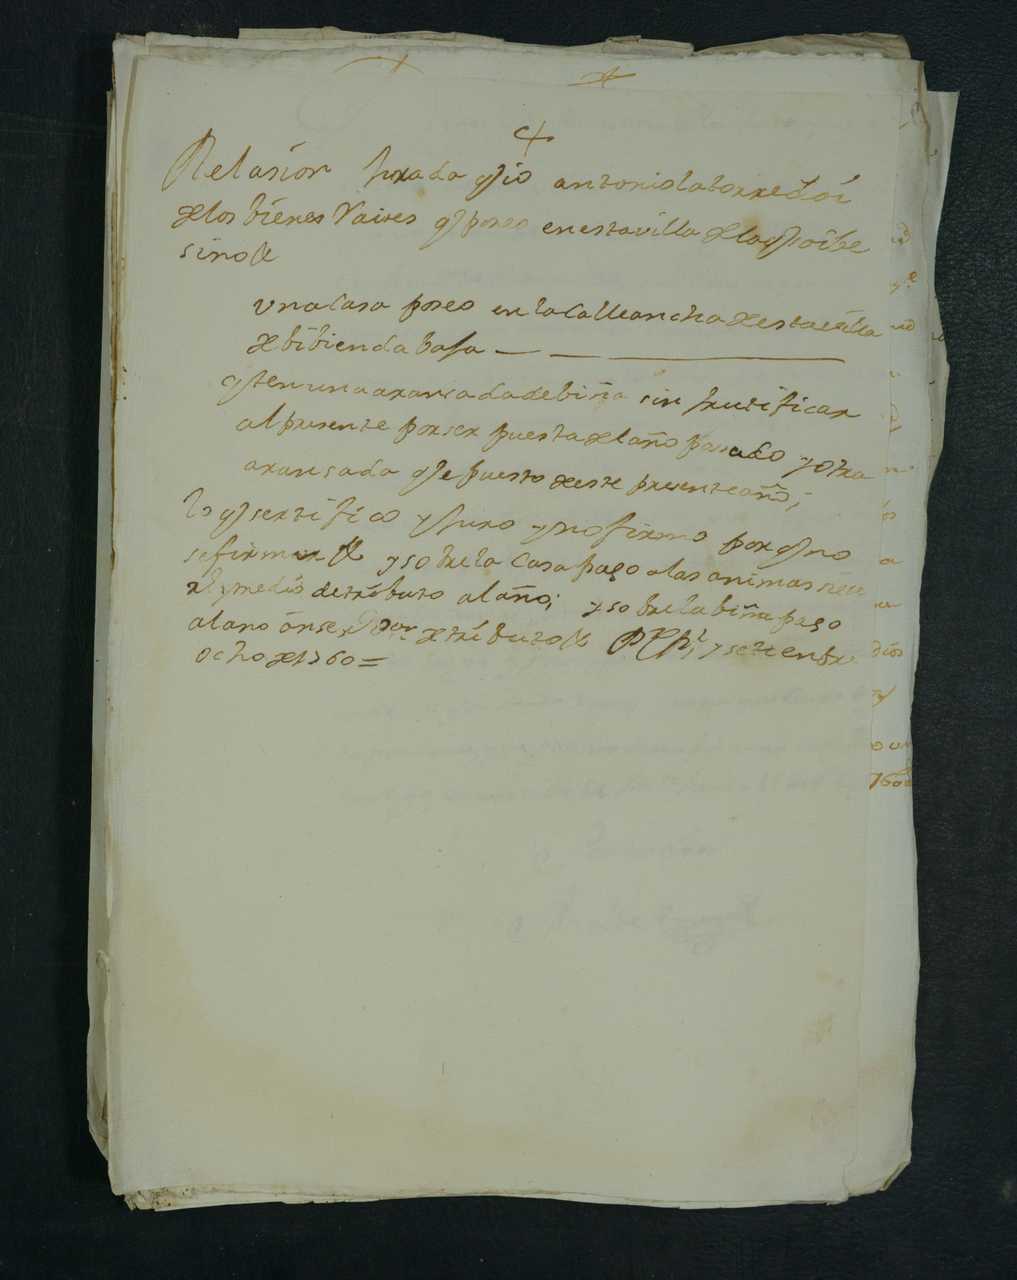 Relasion jurada q̃ io antonio latorre doi
de los bienes Raises q̃ poseo en esta villa de
sino &
una Casa poseo en la Calle ancha de esta villa
de bibienda baja — —
yten una aransada de biña sin frutificar
al presente por ser puesta el año pasado y otra
aransada q̃ e puesto este presente año;
lo q̃ sertifico y juro y no firmo por q̃ no
se firmar & y sobre la Casa pago a las animas
medio de tributo al año; y sobre la biña pago
al ano onse de tributo & y setienbre
ocho de 1760 =